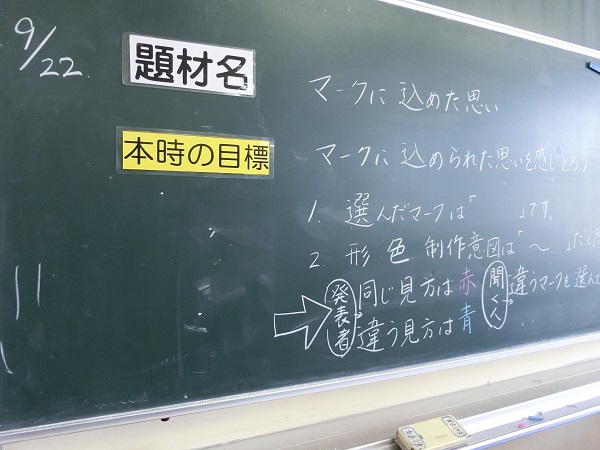 9/22
題材名 マークに込めた思い
本時の目標 マークに込められた思いを感じとろう
1. 選んだマークは「　　」です。
2. 形 色 制作意図は「～　」だと
発表者 同じ見方は赤
違う見方は青
聞く人 違うマークを選んで